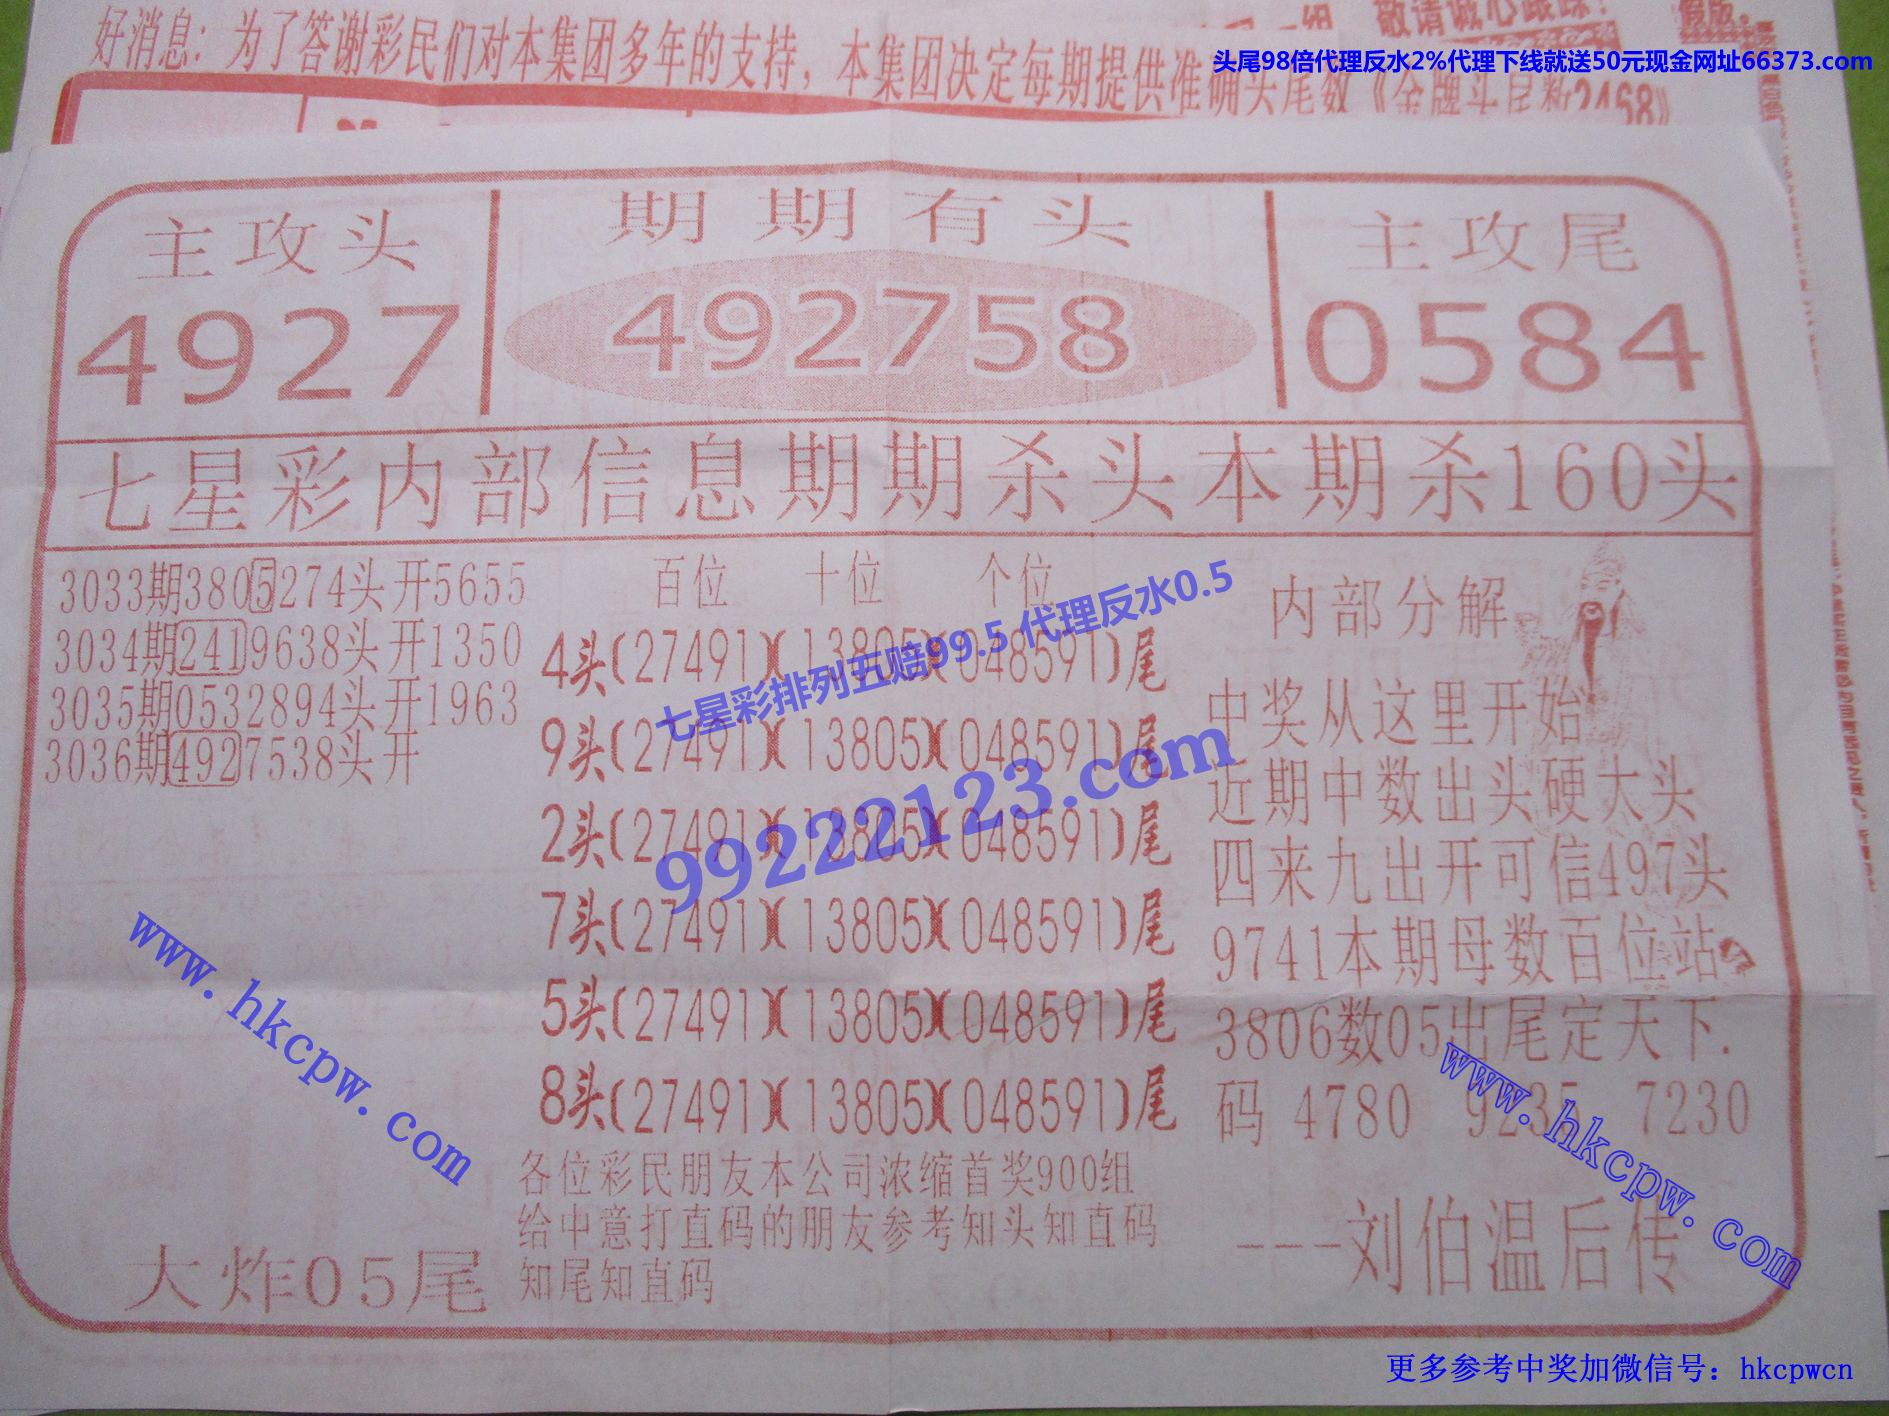 好消息：为了答谢彩民们对本集团多年的支持，本集团决定每期提供准确头尾数《金牌头尾数2468》
敬请诚心跟踪！
假版。
头尾98倍代理反水2%代理下线就送50元现金网址66373.com
主攻头
4927
期期有头
492758
主攻尾
0584
七星彩内部信息期期杀头本期杀160头
3033期3805274头开5655
3034期2419638头开1350
3035期0532894头开1963
3036期4927538头开
百位 十位 个位
4头(27491)(13805)(048591)尾
9头(27491)(13805)(048591)尾
2头(27491)(13805)(048591)尾
7头(27491)(13805)(048591)尾
5头(27491)(13805)(048591)尾
8头(27491)(13805)(048591)尾
七星彩排列五赔99.5 代理反水0.5
99222123.com
内部分解
中奖从这里开始
近期中数出头硬大头
四来九出开可信497头
9741本期母数百位站
3806数05出尾定天下.
码 4780 9235 7230
---刘伯温后传
各位彩民朋友本公司浓缩首奖900组
给中意打直码的朋友参考知头知直码
知尾知直码
大炸05尾
www.hkcpw.com
www.hkcpw.com
更多参考中奖加微信号：hkcpwcn